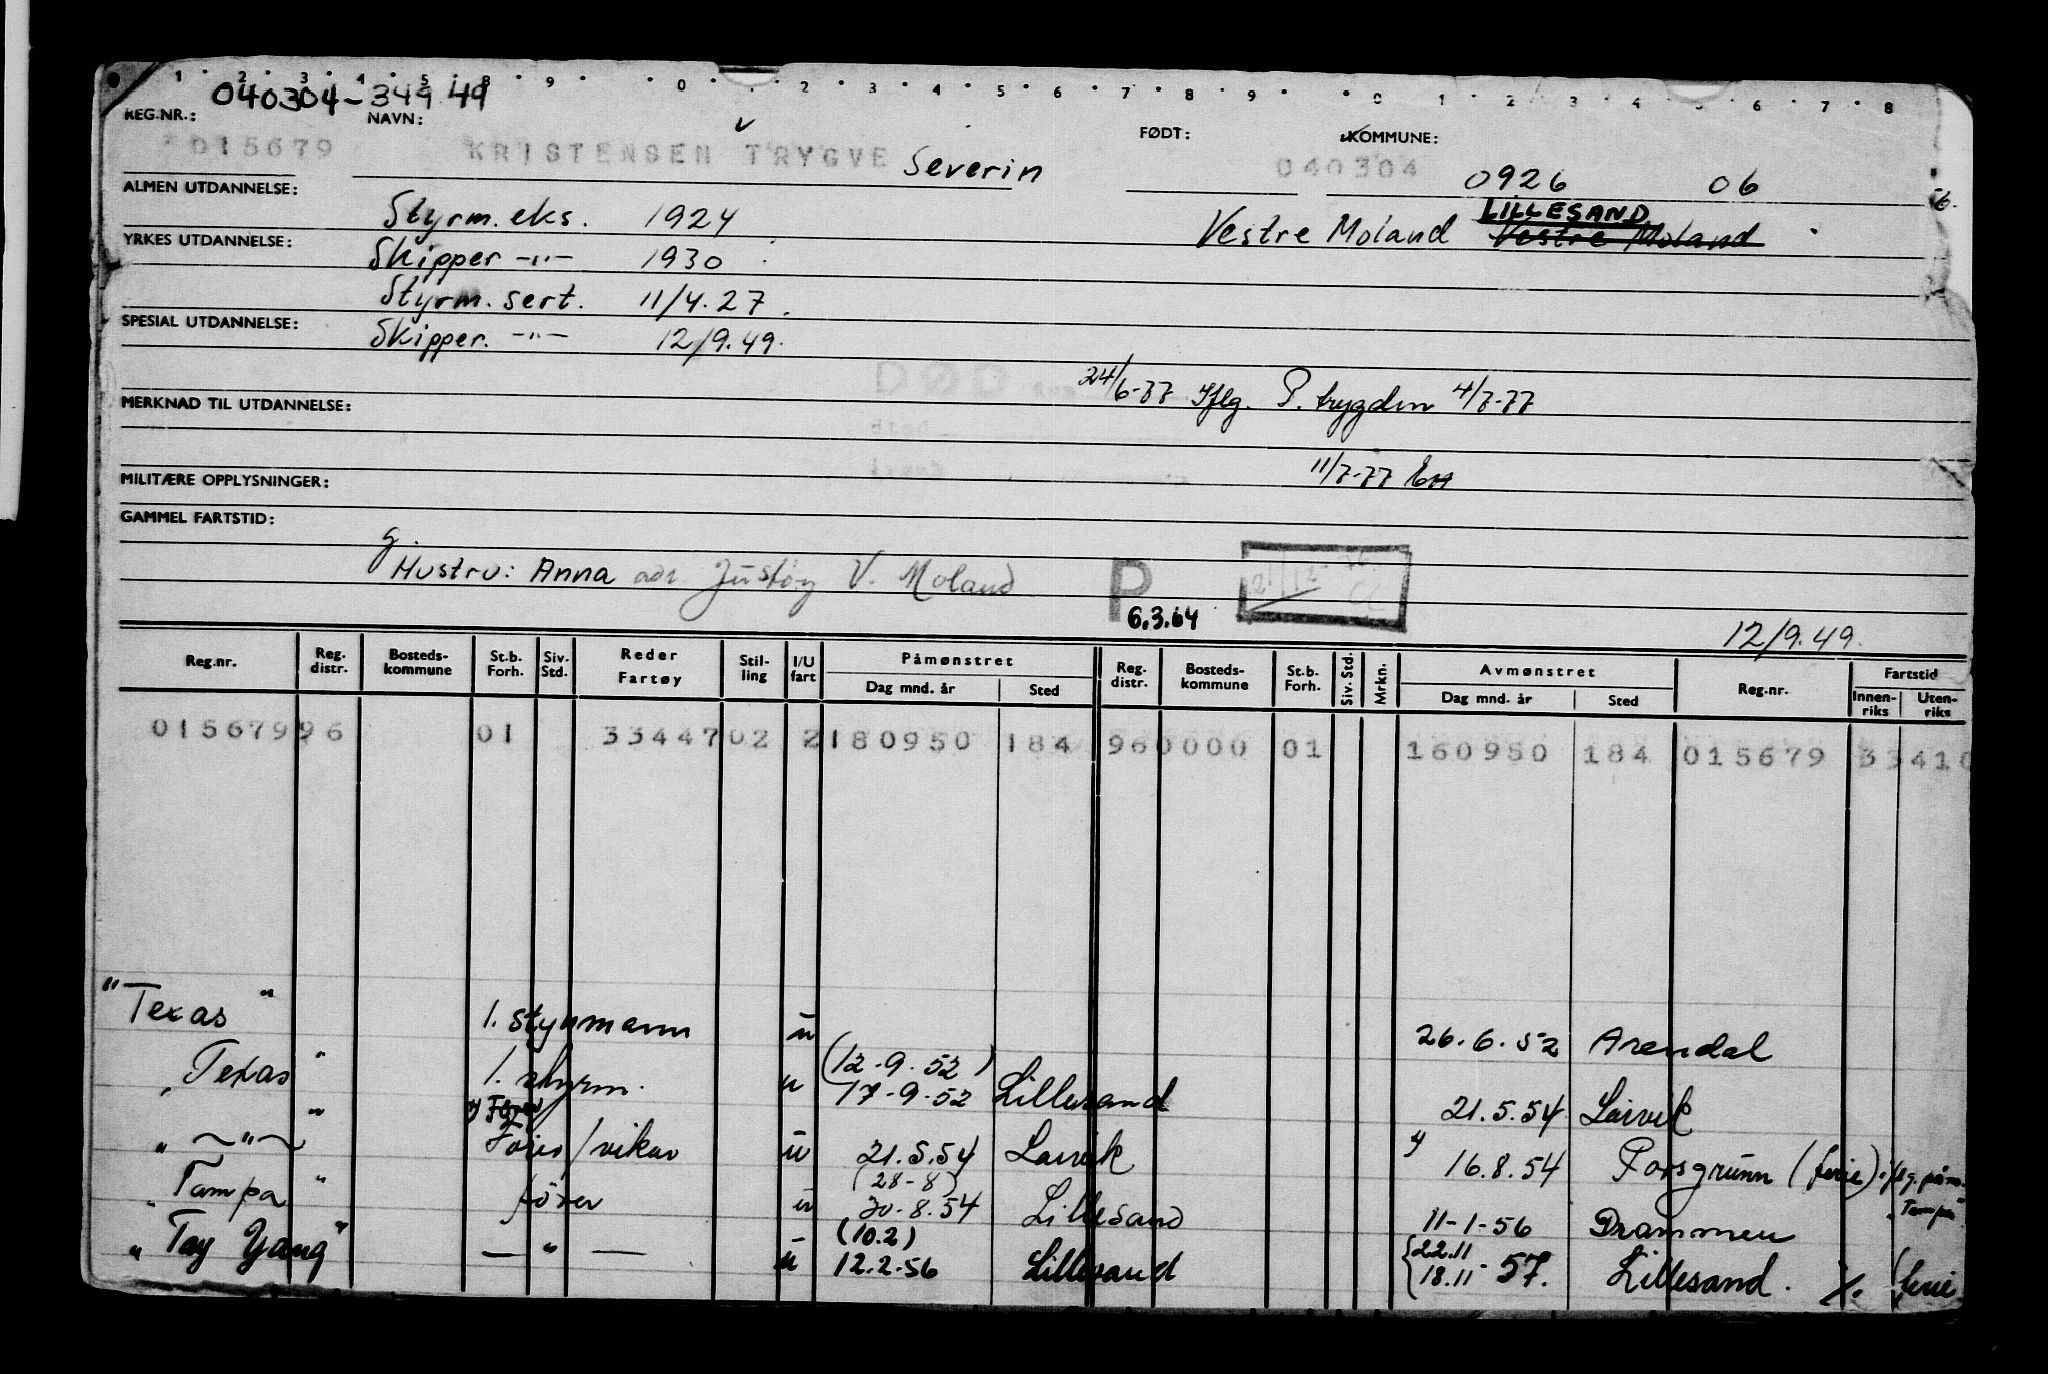 1 2 3 4 5 8 9 0 2 3 4 5 6 7 8 9 0 1 2 3 4 6 7 8
040304-349 49
REG.NR.: NAVN: FØDT: KOMMUNE:
015679 KRISTENSEN TRYGVE Severin 040304 0926 06
ALMEN UTDANNELSE: Styrm. eks. 1924 LILLESAND 56.
Vestre Moland Vestre Moland
YRKES UTDANNELSE: Skipper -"- 1930
Styrm. sert. 11/4.27.
SPESIAL UTDANNELSE: Skipper. -"- 12/9.49.
DØD 24/6-77 Iflg. P. trygden 4/7-77
MERKNAD TIL UTDANNELSE:
sted
11/7-77
MILITÆRE OPPLYSNINGER:
GAMMEL FARTSTID:
g.
Hustru: Anna adr. Justøy V. Moland P
6.3.64
12/9.49.
Reg.nr. Reg. distr. Bosteds-kommune St.b. Forh. Siv. Std. Reder Fartøy Stil-ling I/U fart Påmønstret Dag mnd. år Sted Reg. distr. Bosteds-kommune St.b. Forh. Siv. Std. Mrkn. Avmønstret Dag mnd. år Sted Reg.nr. Fartstid Innen-riks Uten-riks
015679 96 01 33447 02 2 180950 184 96 0000 01 160950 184 015679 33410
"Texas" 1. styrmann u 26.6.52 Arendal
(12-9.52)
"Texas" 1. styrm. u 17-9-52 Lillesand 21.5.54 Larvik
"—"—" Fører/vikar u 21.5.54 Larvik 16.8.54 Porsgrunn (ferie) iflg. påm. "Tampa"
(28-8)
"Tampa" fører u 30.8.54 Lillesand 11-1-56 Drammen
(10.2) 22.11
"Tay Yang" — " — u 12.2.56 Lillesand 18.11 57. Lillesand. (ferie